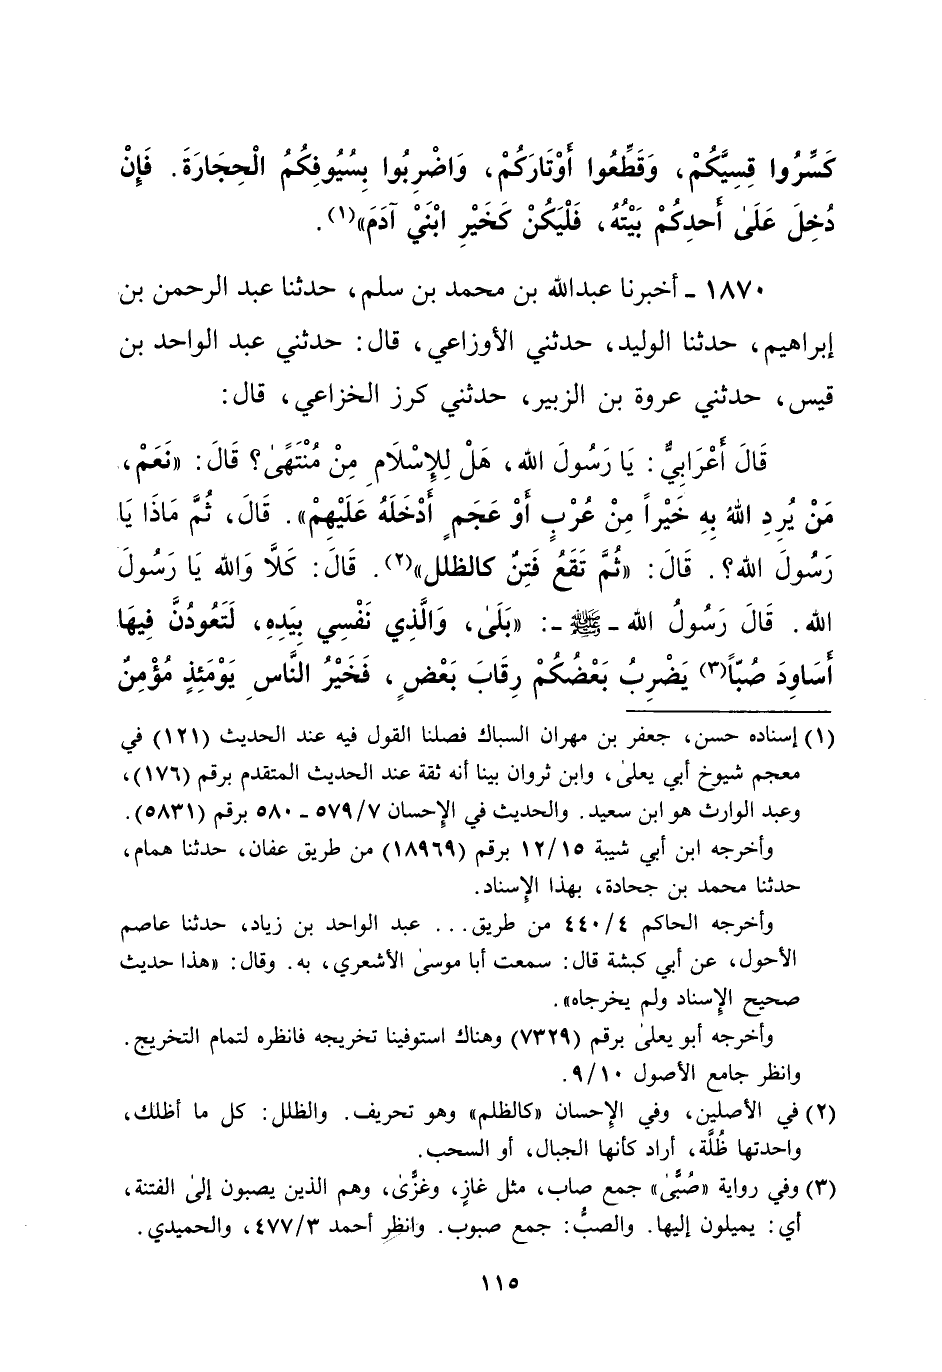 كَسِّرُوا قِسِيَّكُمْ، وَقَطِّعُوا أَوْتَارَكُمْ، وَاضْرِبُوا بِسُيُوفِكُمُ الْحِجَارَةَ. فَإِنْ
دُخِلَ عَلَىٰ أَحدِكُمْ بَيْتُهُ، فَلْيَكُنْ كَخَيْرِ ابْنَيْ آدَمَ»(١).
١٨٧٠ - أخبرنا عبدالله بن محمد بن سلم، حدثنا عبد الرحمن بن
إبراهيم، حدثنا الوليد، حدثني الأوزاعي، قال: حدثني عبد الواحد بن
قيس، حدثني عروة بن الزبير، حدثني كرز الخزاعي، قال:
قَالَ أَعْرَابِيٌّ: يَا رَسُولَ الله، هَلْ لِلإِسْلَامِ مِنْ مُنْتَهًىٰ؟ قَالَ: «نَعَمْ،
مَنْ يُرِدِ اللهُ بِهِ خَيْراً مِنْ عُرْبٍ أَوْ عَجَمٍ أَدْخَلَهُ عَلَيْهِمْ». قَالَ، ثُمَّ مَاذَا يَا
رَسُولَ الله؟. قَالَ: «ثُمَّ تَقَعُ فَتِنٌ كالظلل»(٢). قَالَ: كَلَّا وَالله يَا رَسُولَ
الله. قَالَ رَسُولُ الله - ﷺ -: «بَلَىٰ، وَالَّذِي نَفْسِي بِيَدِهِ، لَتَعُودُنَّ فِيهَا
أَسَاوِدَ صُبّاً(٣) يَضْرِبُ بَعْضُكُمْ رِقَابَ بَعْضٍ، فَخَيْرُ النَّاسِ يَوْمَئِذٍ مُؤْمِنٌ
(١) إسناده حسن، جعفر بن مهران السباك فصلنا القول فيه عند الحديث (١٢١) في
معجم شيوخ أبي يعلىٰ، وابن ثروان بينا أنه ثقة عند الحديث المتقدم برقم (١٧٦)،
وعبد الوارث هو ابن سعيد. والحديث في الإحسان ٥٧٩/٧ - ٥٨٠ برقم (٥٨٣١).
وأخرجه ابن أبي شيبة ١٢/١٥ برقم (١٨٩٦٩) من طريق عفان، حدثنا همام،
حدثنا محمد بن جحادة، بهذا الإسناد.
وأخرجه الحاكم ٤٤٠/٤ من طريق... عبد الواحد بن زياد، حدثنا عاصم
الأحول، عن أبي كبشة قال: سمعت أبا موسىٰ الأشعري، به. وقال: «هذا حديث
صحيح الإسناد ولم يخرجاه».
وأخرجه أبو يعلىٰ برقم (٧٣٢٩) وهناك استوفينا تخريجه فانظره لتمام التخريج.
وانظر جامع الأصول ٩/١٠.
(٢) في الأصلين، وفي الإحسان «كالظلم» وهو تحريف. والظلل: كل ما أظلك،
واحدتها ظُلَّة، أراد كأنها الجبال، أو السحب.
(٣) وفي رواية «صُبًّىٰ» جمع صاب، مثل غازٍ، وغزًّىٰ، وهم الذين يصبون إلىٰ الفتنة،
أي: يميلون إليها. والصبُّ: جمع صبوب. وانظر أحمد ٤٧٧/٣، والحميدي.
١١٥